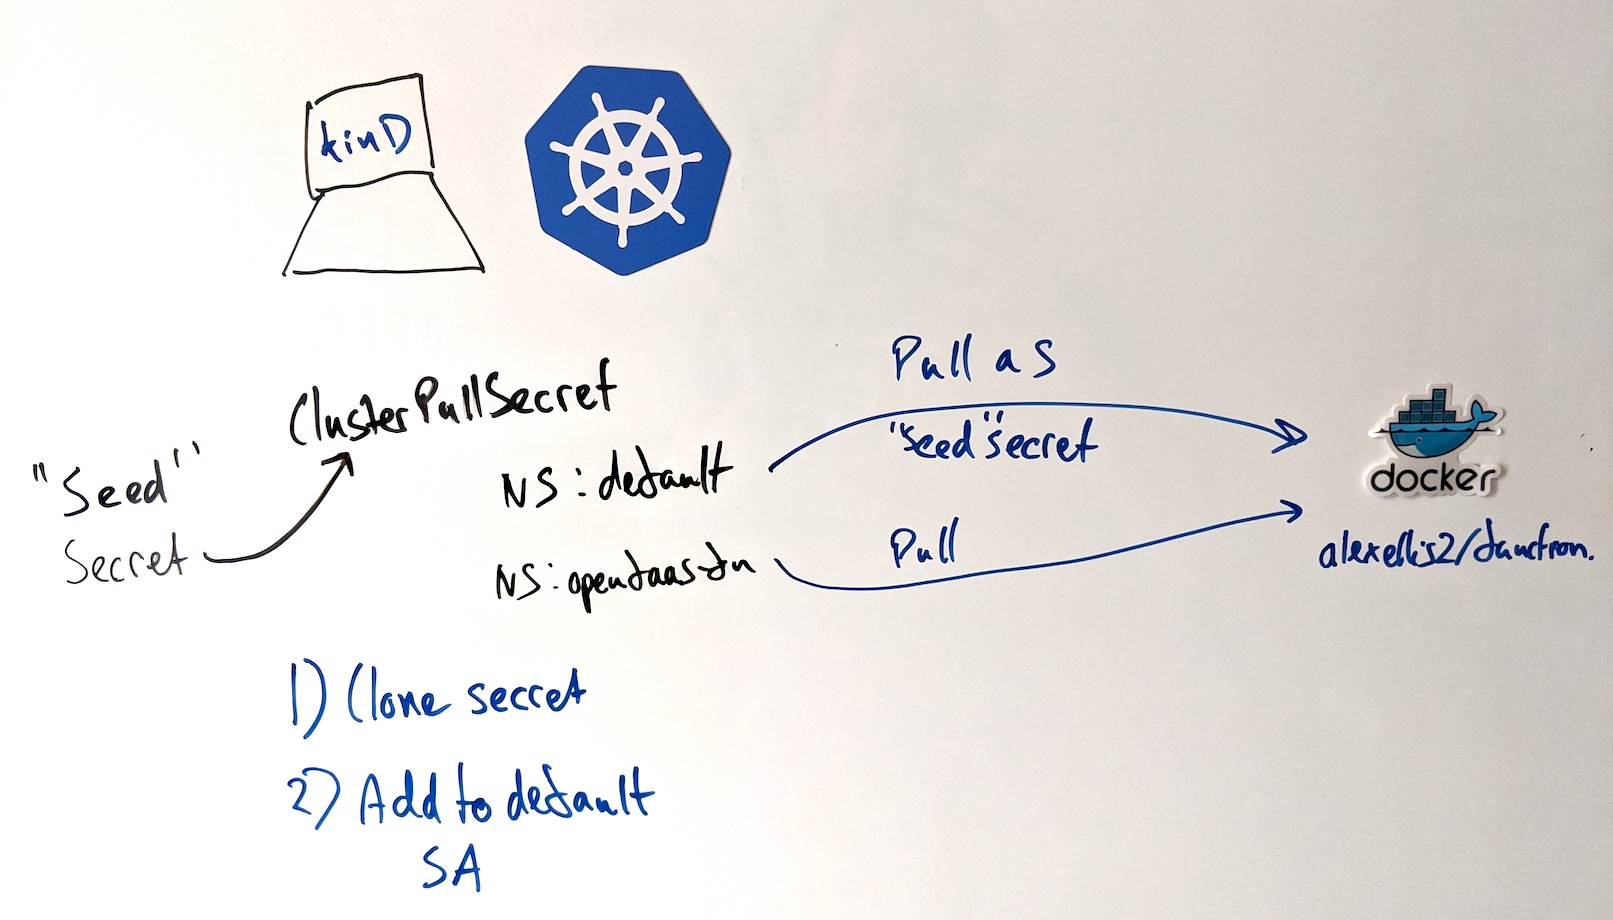 kinD
ClusterPullSecret
"Seed"
Secret
NS: default
NS: openfaas-fn
Pull as
"seed" secret
Pull
docker
alexellis2/function.
1) Clone secret
2) Add to default
SA